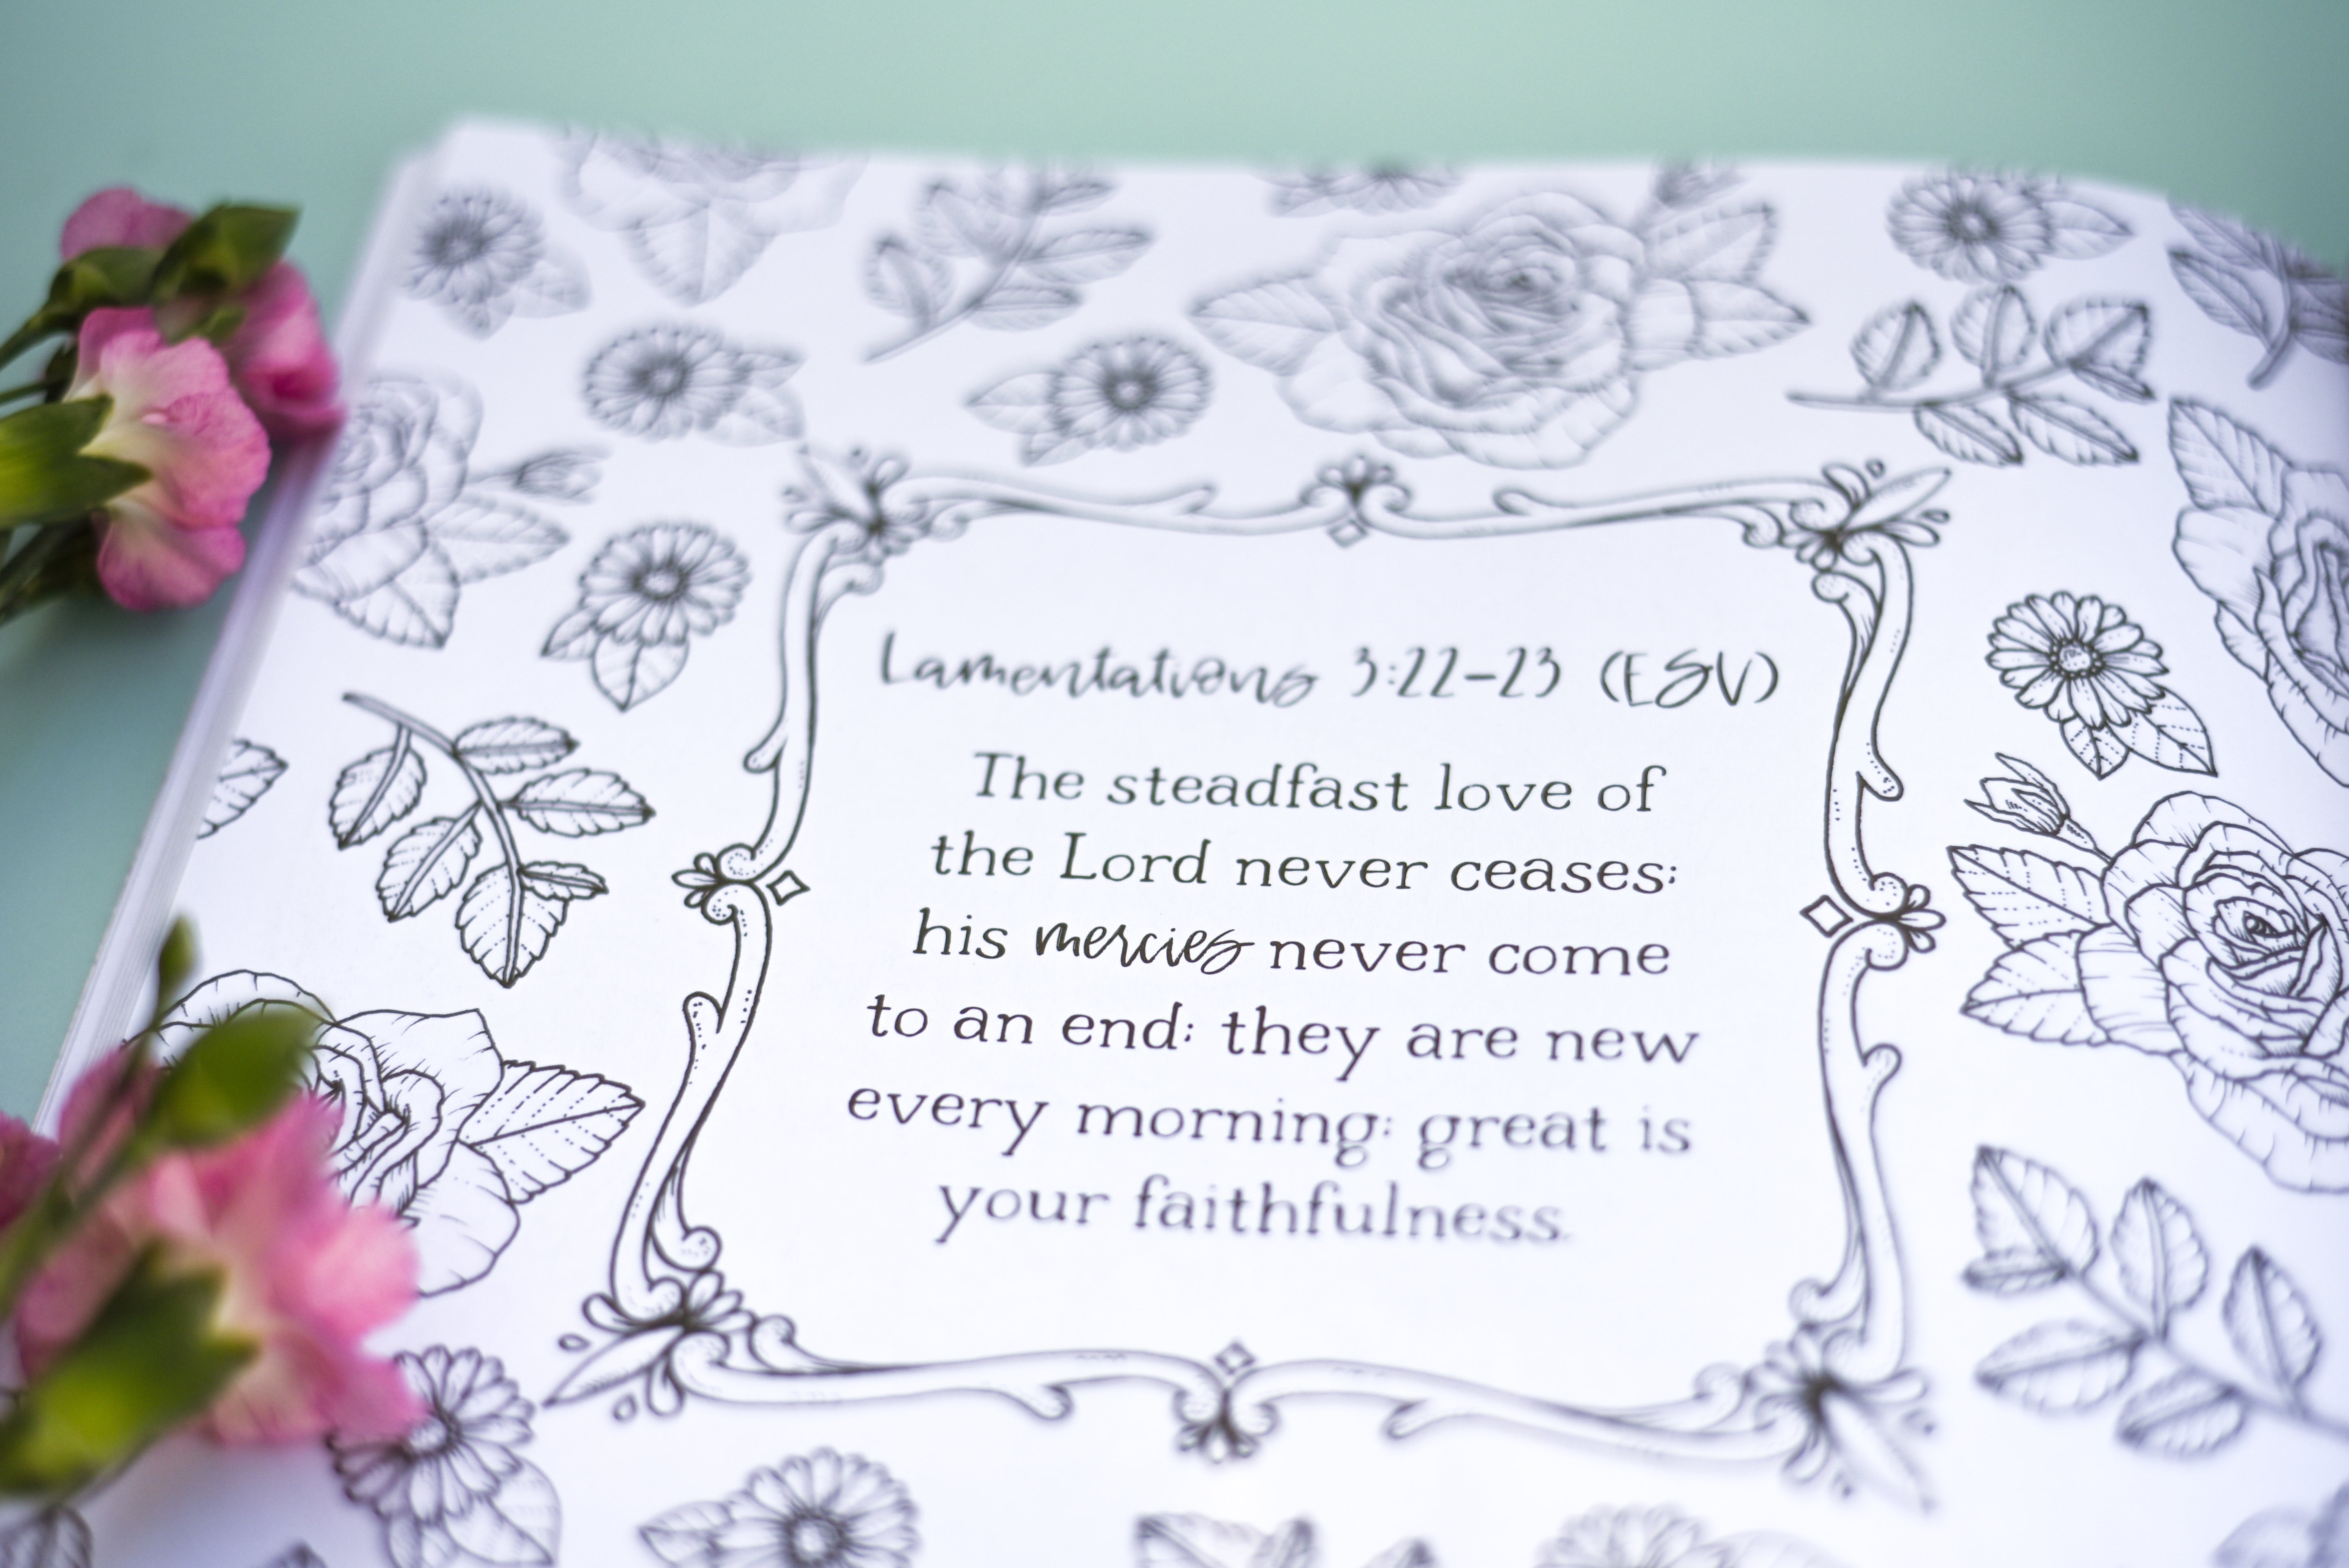 Lamentations 3:22-23 (ESV)
The steadfast love of
the Lord never ceases;
his mercies never come
to an end; they are new
every morning; great is
your faithfulness.